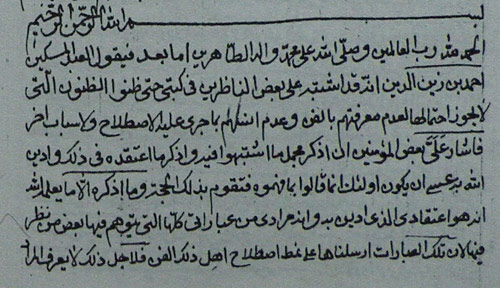 بسم الله الرحمن الرحيم
الحمد لله رب العالمين وصلى الله على محمد واله الطاهرين اما بعد فيقول العبد المسكين
احمد بن زين الدين انه قد اشتبه على بعض الناظرين في كتبي حتى ظنوا الظنون التي
لا يجوز احتمالها لعدم معرفتهم بالفن وعدم انسهم بما جرى عليه الاصطلاح ولاسباب اخر
فاشار علي بعض المؤمنين ان اذكر مجمل ما اشتبهوا فيه واذكر ما اعتقده في ذلك وادين
الله به عسى ان يكون اولئك انما قالوا بما فهموه فتقوم بذلك الحجة وما اذكره الا ما يعلم الله
انه هو اعتقادي الذي ادين به وانه مرادي من عباراتي كلها التي يتوهم فيها بعض من نظر
فيها لان تلك العبارات ارسلناها على نمط اصطلاح اهل ذلك الفن فلاجل ذلك لا يعرف المراد